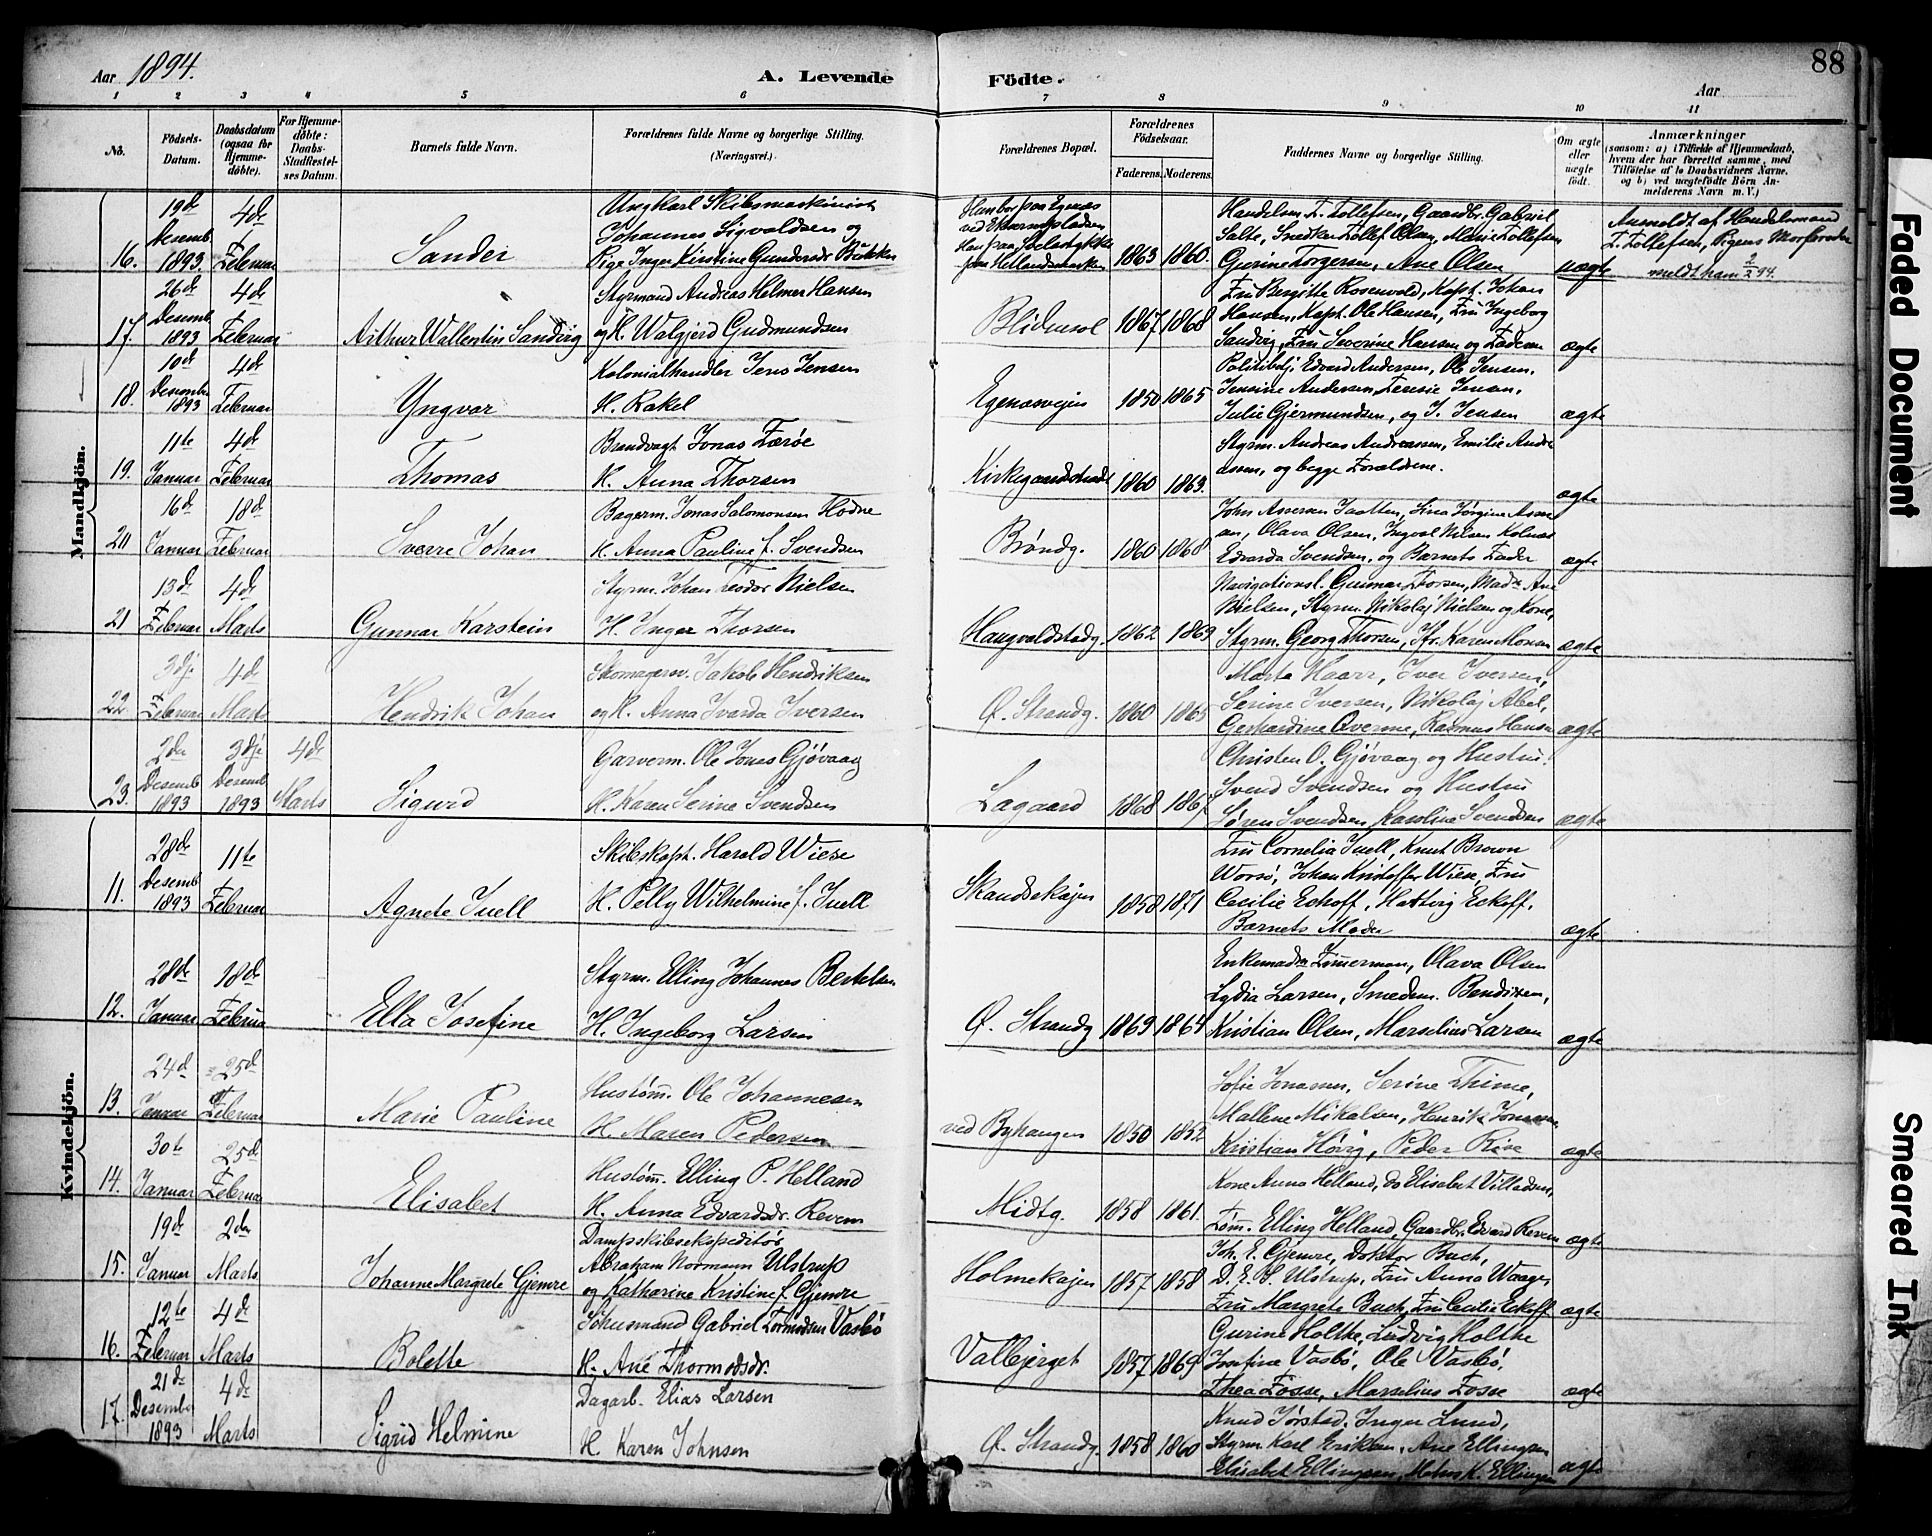 Aar 1894.
A. Levende Födte.
Aar
88
1 2 3 4 5 6 7 8 9 10 11
No.
Födsels-Datum.
Daabsdatum (ogsaa for Hjemme-döbte).
For Hjemme-döbte: Daabs-Stadfæstel-ses Datum.
Barnets fulde Navn.
Forældrenes fulde Navne og borgerlige Stilling. (Næringsvei.)
Forældrenes Bopæl.
Forældrenes Födselsaar.
Faderens. Moderens.
Faddernes Navne og borgerlige Stilling.
Om ægte eller uægte födt.
Anmærkninger
(saasom: a) i Tilfælde af Hjemmedaab,
hvem der har forrettet samme, med
Tilföielse af to Daabsvidners Navne.
og b) ved uægtefödte Börn An-
melderens Navn m. V.)
Mandkjön.
16. 19de Desemb 1893. 4de Februar
Sander
Ungkarl Skibsmaskinist
Johannes Sigvaldsen og
Pige Inger Kirstine Gundersdr
Han bor paa Egenæs
1863 1860.
Handelsm. T. Tollefsen, Gaardbr. Gabriel
Salte, Snedker Tollef Olsen, Marie Tollefsen
Gurine Torgersen, Ane Olsen
uægte
Anmeldt af Handelsmand
T. Tollefsen, Pigens Morforældre
meldt ham 2/2 94.
17. 26de Desemb. 1893 4de Februar
Arthur Wallentin Sandvig
Styrmand Andreas Helmer Hansen
og H. Walgjerd Gudmundsen
Blidensol
1867 1868
Fru Bergitte Rosenvold, Kapt. Johan
Hansen, Kapt. Ole Hansen, Fru Ingeborg
Sandvig, Fru Severine Hansen og Faderen
ægte
18. 10de Desemb 1893 4de Februar
Yngvar
Kolonialhandler Jens Jensen
H. Rakel
Egenæsvejen
1850 1865
Politibetj. Edvard Andersen, Ole Jensen,
Jensine Andersen, Teresie Jensen,
Julie Gjermundsen, og J. Jensen
ægte
19. 11te Januar 4de Februar
Thomas
Brandvagt Jonas Færøe
H. Anna Thorsen
Kirkegaardsstrædet
1860 1863.
Styrm. Andreas Andreassen, Emilie Andre
assen, og begge Forældrene.
ægte
20 16de Januar 18de Februar
Sverre Johan
Bagerm. Jonas Salomonsen Hodne
H. Anna Pauline f. Svendsen
Brøndg.
1860 1868
John Assersen Jaatten, Sina Jørgine Asser
sen, Olava Olsen, Ingval Nilsen Kolnæs
Edvarda Svendsen, og Barnets Fader
ægte
21 13de Februar 4de Marts
Gunnar Karstein
Styrm. Johan Teodor Nielsen
H. Inger Thorsen
Haugvaldstadg.
1862 1869
Navigationsl. Gunnar Thorsen, Mad. Ane
Nielsen, Styrm. Nikolaj Nielsen og Kone,
Styrm. Georg Thorsen, Jfr. Karen Monsen
ægte
22. 3dje Februar 4de Marts
Hendrik Johan
Skomagersv. Jakob Hendriksen
og H. Anna Ivarda Iversen
Ø. Strandg.
1860 1865
Marta Haarr, Iver Iversen,
Serine Iversen, Nikolaj Abel,
Gerhardine Qverme, Rasmus Hansen
ægte
23. 2den Desemb 1893 3dje Desemb 1893 4de Marts
Sigurd
Garverm. Ole Jonas Gjövaag
H. Karen Serine Svendsen
Lagaard
1868 1867
Christen O. Gjövaag og Hustru.
Svend Svendsen og Hustru
Søren Svendsen, Karoline Svendsen
ægte
Kvindekjön.
11. 28de Desemb 1893 11te Februar
Agnete Juell
Skibskapt. Harald Wiese
H. Pelly Wilhelmine f. Juell
Skandsekajen
1858 1871
Fru Cornelia Juell, Knut Brown
Worsö, Johan Kristoffer Wiese, Fru
Cecilie Eckoff, Hattvig Eckoff,
Barnets Moder
ægte
12. 28de Januar 18de Februa
Ella Josefine
Styrm. Elling Johannes Bertelsen
H. Ingeborg Larsen
Ø. Strandg
1869 1864
Enkemad. Zimmerman, Olava Olsen
Lydia Larsen, Smedem. Bendixen,
Kristian Olsen, Marselius Larsen
ægte
13. 24de Januar 25de Februar
Marie Pauline
Hustømm. Ole Johannesen
H. Maren Pedersen
ved Byhaugen
1850 1852
Sofie Jonassen, Serine Thime,
Mallene Mikalsen, Henrik Jonassen,
Kristian Hørig, Peder Riise
ægte
14. 30te Januar 25de Februar
Elisabet
Hustømm. Elling P. Helland
H. Anna Edvardsdr. Reven
Midtg.
1858 1861.
Kone Anna Helland, do Elisabet Villadsen,
Tømm. Elling Helland, Gaardbr. Edvard Reven
ægte
15. 19de Januar 2den Marts
Johanne Margrete Gjemre
Dampskibsekspeditør
Abraham Normann Ulstrup
og Katharine Kristine f. Gjemre
Holmekajen
1857 1858
Joh. E. Gjemre, Doktor Buch,
D. E. S. Ulstrup, Fru Anna Waage,
Fru Margrete Buch, Fru Cecilie Eckoff
ægte
16. 12te Februar 4de Marts
Bolette
Gabriel Tormodsen Vasbö
H. Ane Thormodsdr.
Valbjerget
1857 1869
Gurine Holtke, Ludvig Holtke
Josefine Vasbö, Ole Vasbö,
Thea Fosse, Marselius Fosse
ægte
17. 21de Desember 1893 4de Marts
Sigrid Helmine
Dagarb. Elias Larsen
H. Karen Johnsen
Ø. Strandg.
1858 1860
Knud Jörstad, Inger Lund,
Styrm. Karl Eriksen, Ane Ellingsen
Elisabet Ellingsen, K. Ellingsen
ægte
Faded Document
Smeared Ink